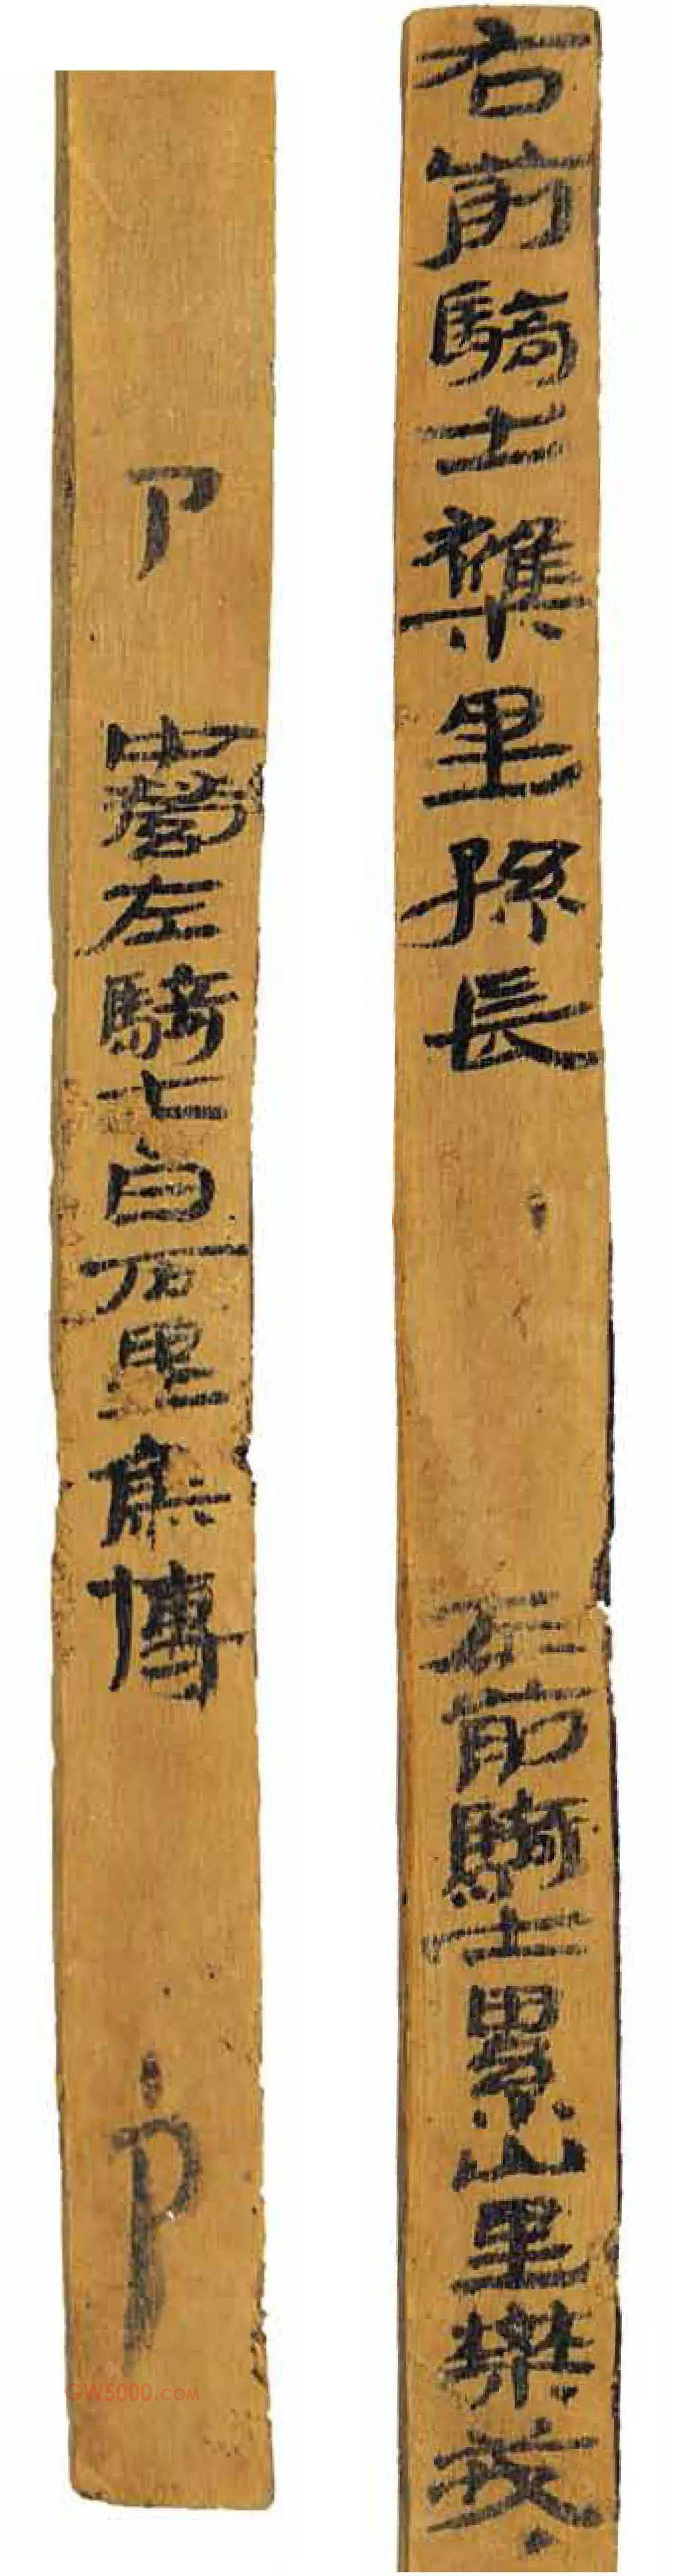 右前騎士襍里孫長 左前騎士累山里樂
卩 中營左騎士白石里焦博 · 卩
GW5000.COM